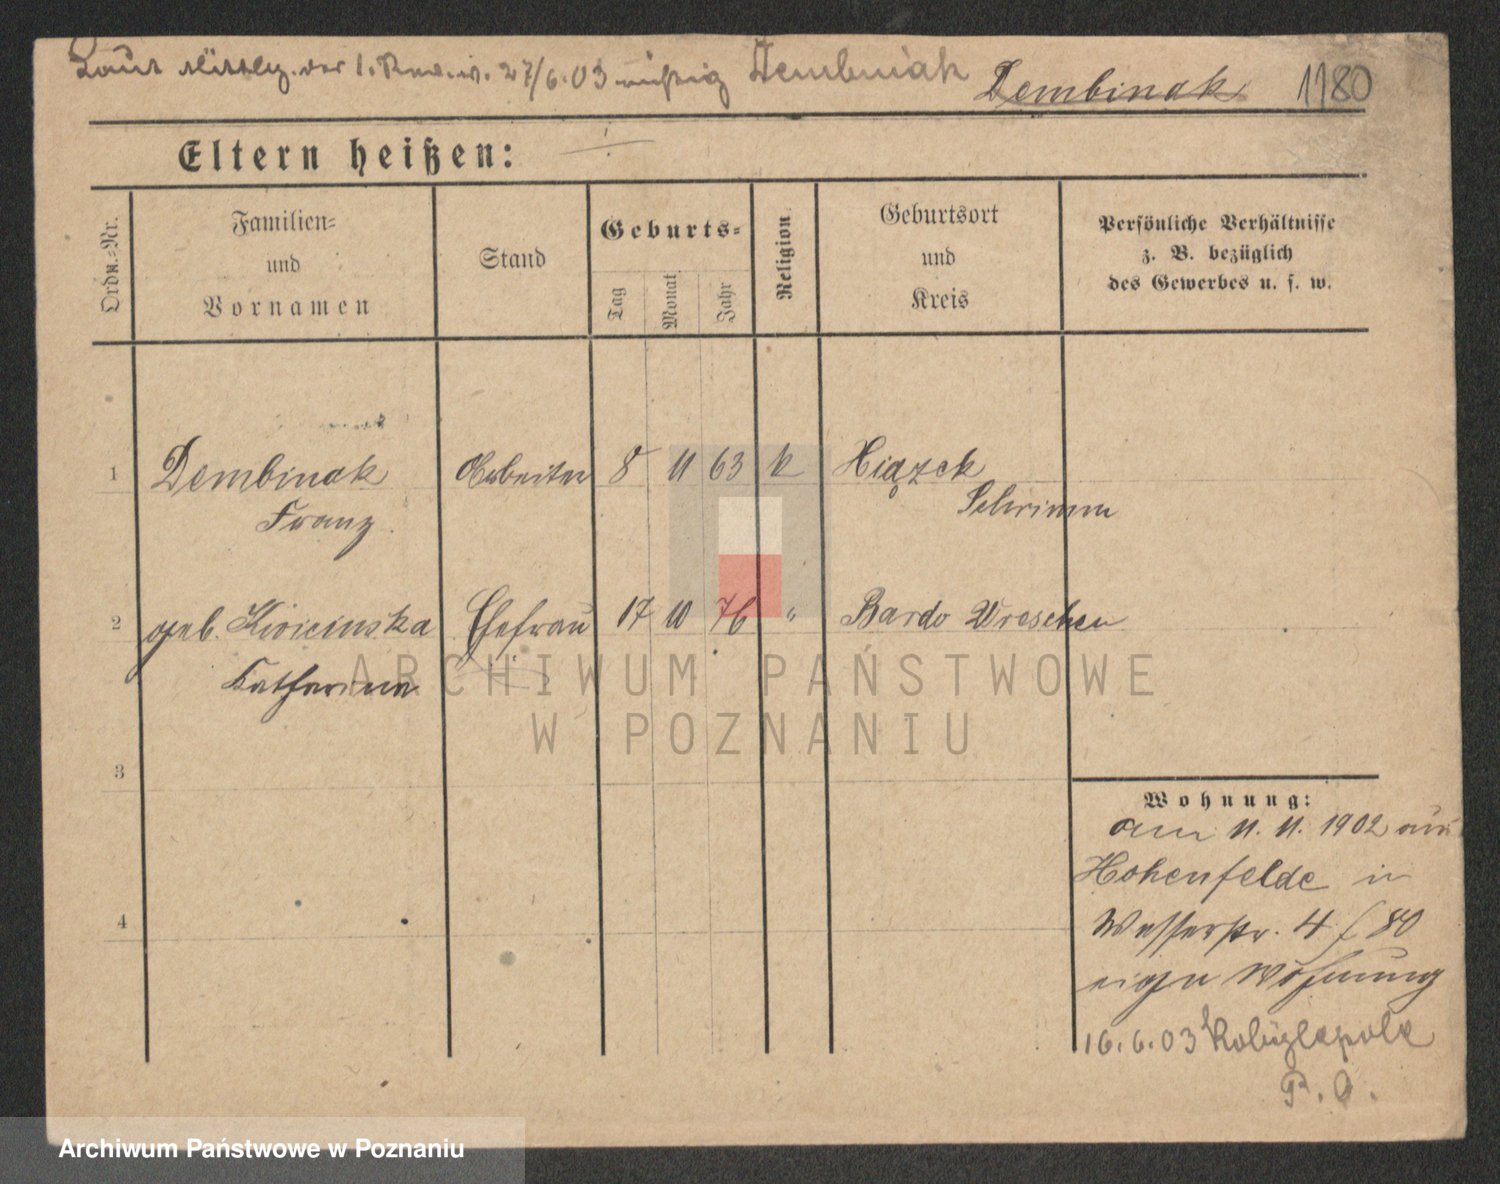 Laut Mittlg. der 1. 27/6.03 richtig Dembniak
Dembinak 1180
Eltern heißen:
Ordn.-Nr.
Familien-
und
Vornamen
Stand
Geburts-
Tag
Monat
Jahr
Religion
Geburtsort
und
Kreis
Persönliche Verhältnisse
z. B. bezüglich
des Gewerbes u. s. w.
1 Dembinak Arbeiter 8 11 63 k Xiązek
Franz Schrimm
2 geb. Ehefrau 17 10 76 " Bardo Wreschen
Katharina
3
4
Wohnung:
am 11. 11. 1902 aus
Hohenfelde in
Wasserstr. 4 80
eigen Wohnung
16.6.03 Kobylepole
P. O.
ARCHIWUM PAŃSTWOWE
W POZNANIU
Archiwum Państwowe w Poznaniu